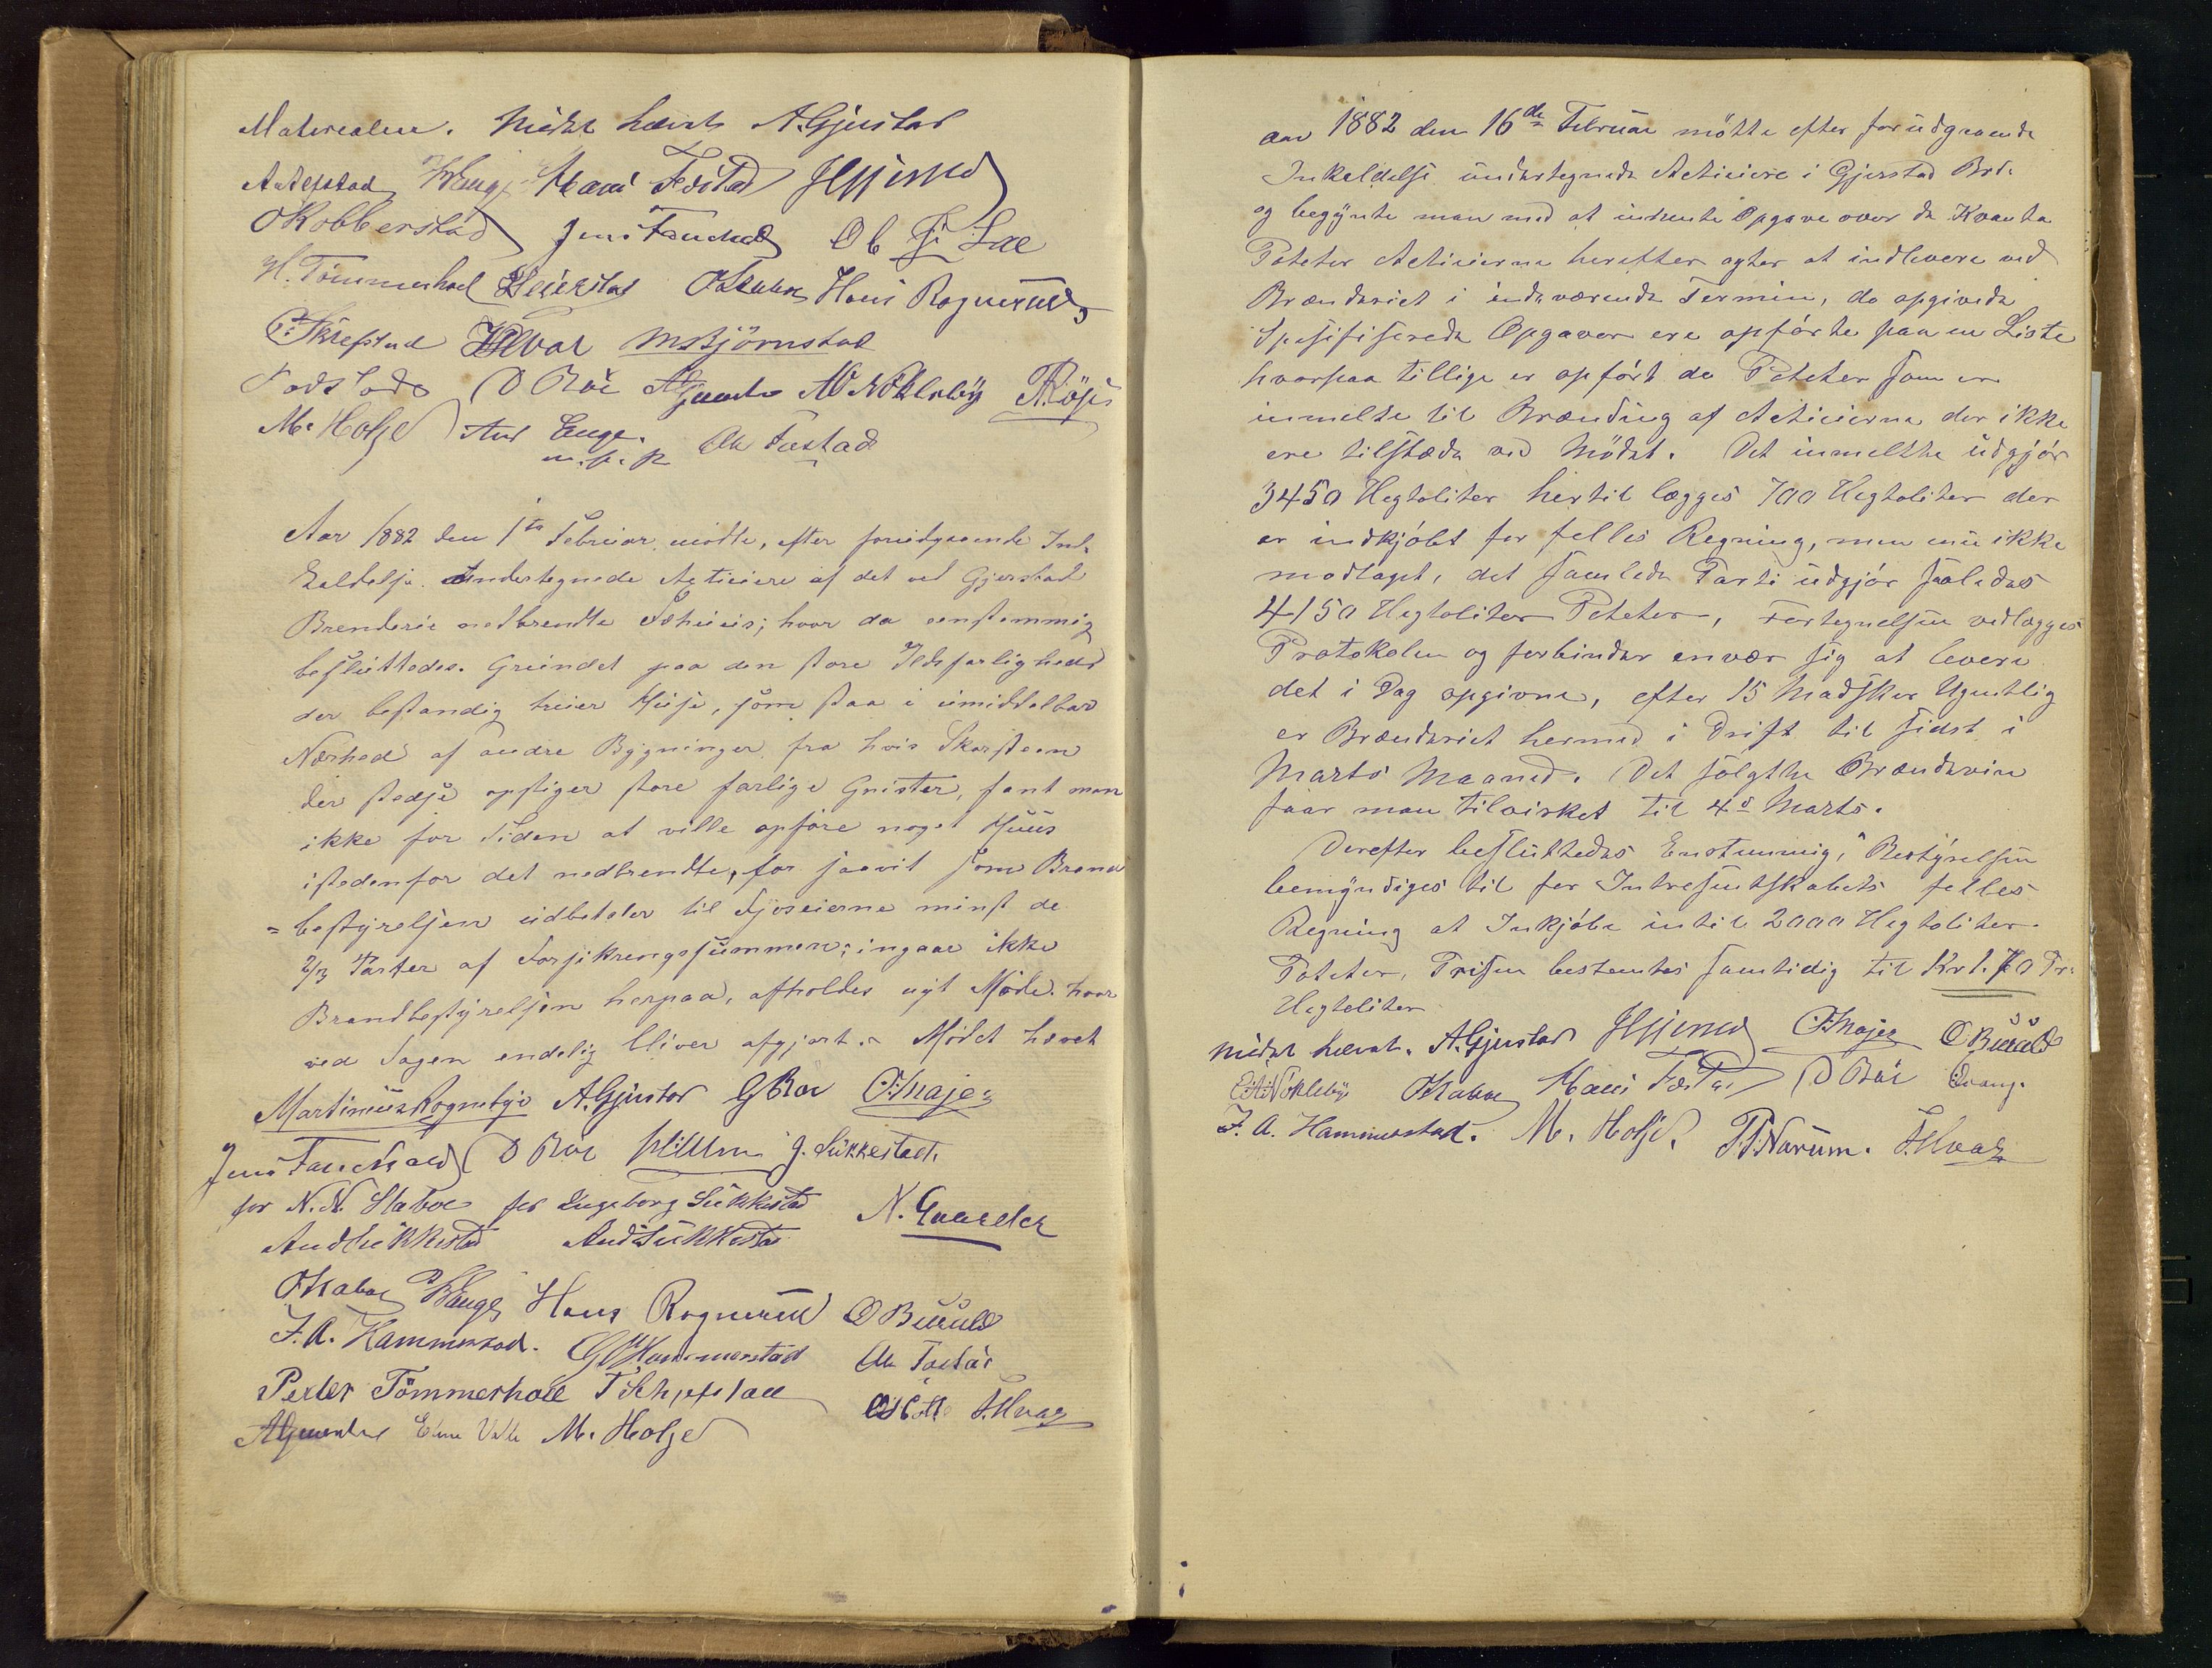 Materealere. Mødet hævet A. Gjestad
Hans Festad
O Kobberstad Jens Fauchald Ob
H. Tömmerhoel O Staboe Hans Rognerud
P. Skrepstad MBjörnstad
D Röe M Nökleby
M. Holje And Enge. Ole Tostad
m. f. P.
Aar 1882 den 1te Februar mödte, efter forudgaaende Ind-
kaldelse undertegnede Actieiere af det ved Gjestad
Brenderie nedbrendte Fæhuus; hvor da eenstemmig
besluttedes. Grundet paa den store Ildsfarlighed
der bestandig truer Huse, som staa i umiddelbar
Nærhed af andre Bygninger fra hvis Skorsteen
der stedse opstiger store farlige Gnister, fant man
ikke for Tiden at ville opföre noget Huus
istedenfor det nedbrendte, for saavit som Brand
=bestyrelsen udbetaler til Fjöseierne minst de
2/3 Parter af Forsikringssummen; ingaar ikke
Brandbestyrelsen herpaa, afholdes nyt Möde. hvor
ved Sagen endelig bliver afgjort.- Mödet hævet
Martinius Rognebye A. Gjestad G Röe O. Majer
Jens Fauchald D Röe J. Sukkestad.
for N. N. Staboe for Ingeborg Sukkestad N. Gaarder
And Sukkestad And Sukkestad
O Staboe Hans Rognerud O Buruld
J. A. Hammerstad. G Hammerstad Ole Tostad
Peder Tömmerhoel P Skrepstad
M. Holje
aar 1882 den 16de Februar mötte efter forudgaaende
Inkaldelse undertegnede Actieiere i Gjerstad Brd.
og begynte man med at inhente Opgave over de Kvanta
Poteter Actieierne herefter agter at indlevere ved
Brænderiet i indeværende Termin, de opgivede
Spesifiserede Opgaver ere opförte paa en Liste
hvorpaa tillige er opfört de Poteter som er
inmelte til Brænding af Actieierne der ikke
ere tilstæde ved Mödet. Det inmeltte udgjör
3450 Hegtoliter hertil lægges 700 Hegtoliter der
er indkjöbt for felles Regning, men enu ikke
modtaget, det samlede Parti udgjör saaledes
4150 Hegtoliter Poteter, Fortegnelsen vedlægges
Protokolen og forbinder envær sig at levere
det i Dag opgivne, efter 15 Madsker Ugentlig
er Brænderiet hermed i Drift til sidst i
Marts Maaned. Det solgtte Brændevin
faar man tilvirket til 4de Marts.
Derefter besluttedes Enstemmig, Bestyrelsen
bemyndiges til for Intresentskabets felles
Regning at Inkjöbe intil 2000 Hegtoliter
Poteter, Prisen bestemtes samtidig til Kr 1.70 Pr.
Hegtoliter
Mödet hævet. A. Gjestad O. Majer O Buruld
Nökleby O Staboe Hans Festad D Röe
J. A. Hammerstad. M. Holje. P. Narum.